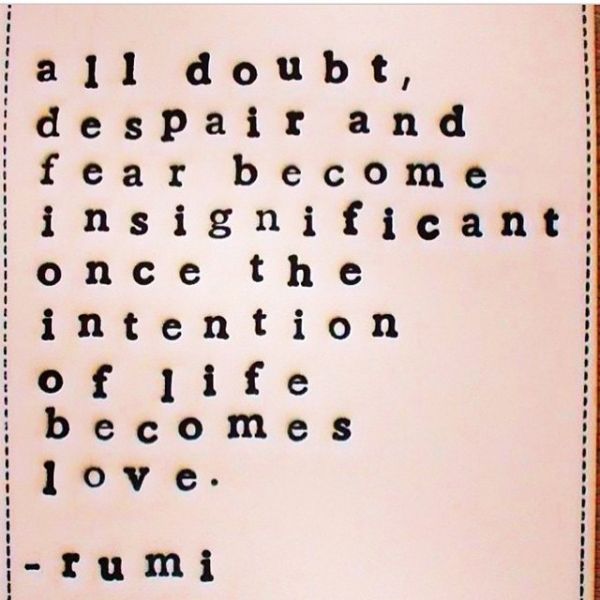 all doubt,
despair and
fear become
insignificant
once the
intention
of life
becomes
love.
-rumi